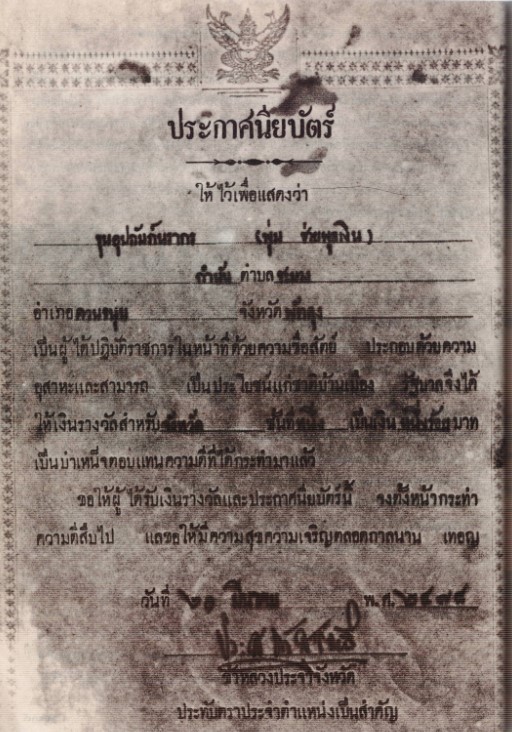 ประกาศนียบัตร์
ให้ไว้เพื่อแสดงว่า
ขุนอุปถัมภ์นรากร (พุ่ม ช่วยพูลเงิน)
กำนัน ตำบล
อำเภอควนขนุน จังหวัดพัทลุง
เป็นผู้ได้ปฏิบัติราชการในหน้าที่ด้วยความซื่อสัตย์ ประกอบด้วยความ
อุสาหะและสามารถ เป็นประโยชน์แก่ชาติบ้านเมือง รัฐบาลจึงได้
ให้เงินรางวัลสำหรับจังหวัด ชั้นที่หนึ่ง เป็นเงิน หนึ่งร้อยบาท
เป็นบำเหน็จตอบแทนความดีที่ได้กระทำมาแล้ว
ขอให้ผู้ได้รับเงินรางวัลและประกาศนียบัตร์นี้ จงตั้งหน้ากระทำ
ความดีสืบไป และขอให้มีความสุขความเจริญตลอดกาลนาน เทอญ
วันที่ ๒๐ มีนาคม พ.ศ. ๒๔๗๘
ข้าหลวงประจำจังหวัด
ประทับตราประจำตำแหน่งเป็นสำคัญ